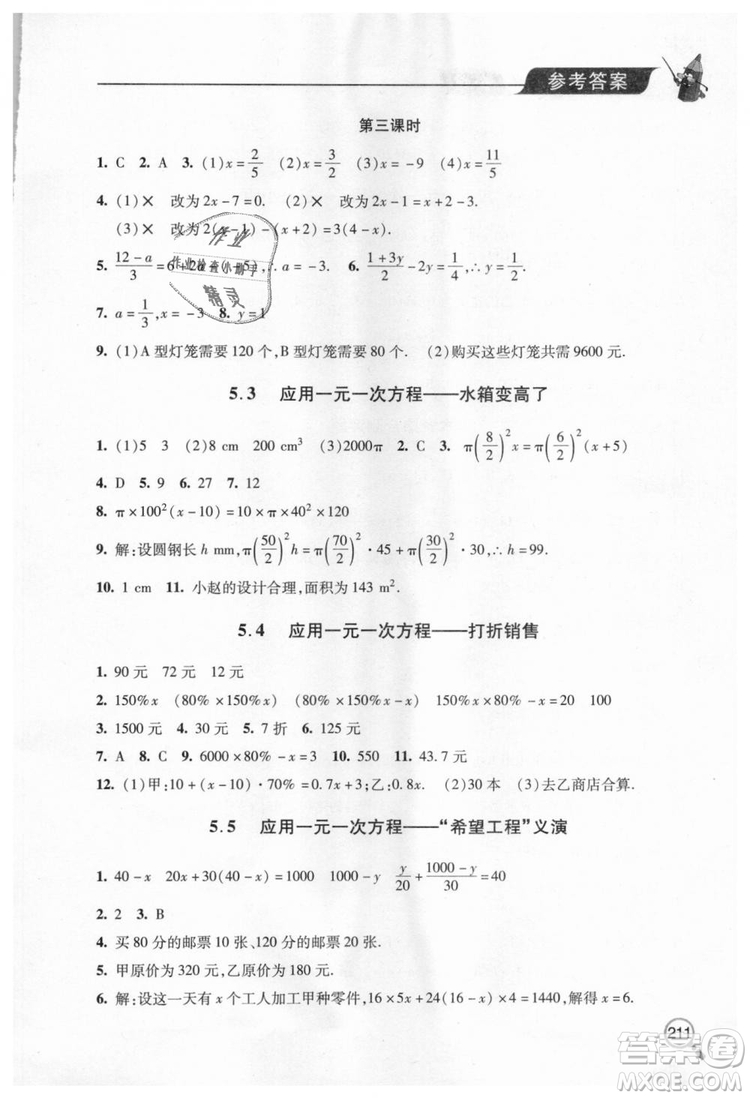 参考答案
第三课时
1. C 2. A 3. (1)x=2/5 (2)x=3/2 (3)x=-9 (4)x=11/5
4. (1)× 改为2x-7=0. (2)× 改为2x-1=x+2-3.
(3)× 改为2(x-1)-(x+2)=3(4-x).
5. (12-a)/3=6+2a ,∴a=-3. 6. (1+3y)/2-2y=1,∴y=1
7. a=1/3,x=-3 8. y=1
9. (1)A型灯笼需要120个,B型灯笼需要80个. (2)购买这些灯笼共需9600元.
作业
作业检查小助手
精灵
5.3 应用一元一次方程——水箱变高了
1. (1)5 3 (2)8 cm 200 cm³ (3)2000π 2. C 3. π(8/2)²x=π(6/2)²(x+5)
4. D 5. 9 6. 27 7. 12
8. π×100²(x-10)=10×π×40²×120
9. 解:设圆钢长h mm,π(50/2)²h=π(70/2)²·45+π(30/2)²·45,∴h=99.
10. 1 cm 11. 小赵的设计合理,面积为143 m².
5.4 应用一元一次方程——打折销售
1. 90元 72元 12元
2. 150%x (80%×150%x) (80%×150%x-x) 150%x×80%-x=20 100
3. 1500元 4. 30元 5. 7折 6. 125元
7. A 8. C 9. 6000×80%-x=3 10. 550 11. 43.7元
12. (1)甲:10+(x-10)·70%=0.7x+3;乙:0.8x. (2)30本 (3)去乙商店合算.
5.5 应用一元一次方程——“希望工程”义演
1. 40-x 20x+30(40-x)=1000 1000-y y/20+(1000-y)/30=40
2. 2 3. B
4. 买80分的邮票10张、120分的邮票20张.
5. 甲原价为320元,乙原价为180元.
6. 解:设这一天有x个工人加工甲种零件,16×5x+24(16-x)×4=1440,解得x=6.
211
答案圈
MXQE.COM